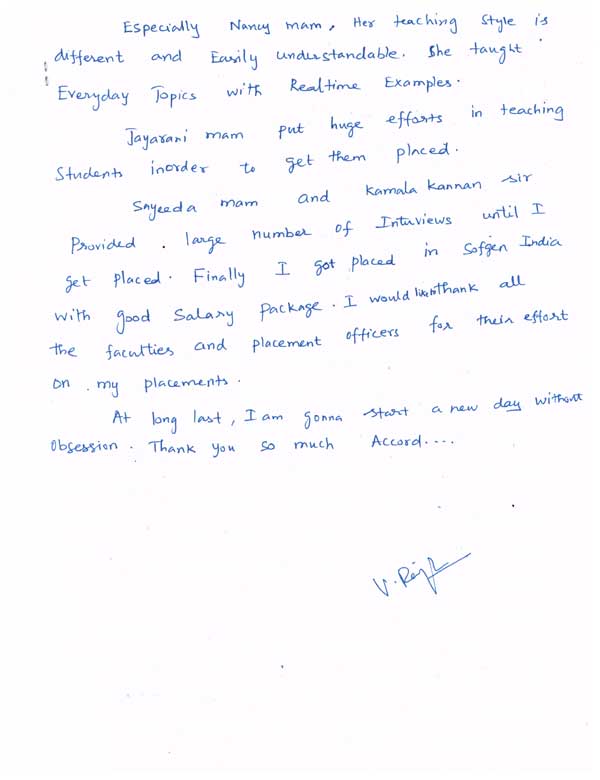 Especially Nancy mam, Her teaching style is
different and Easily understandable. She taught
Everyday Topics with Realtime Examples.
Jayarani mam put huge efforts in teaching
Students inorder to get them placed.
Sayeeda mam and Kamala Kannan sir
Provided large number of Interviews until I
get placed. Finally I got placed in Sofgen India
with good Salary Package. I would like to thank all
the faculties and placement officers for their effort
on my placements.
At long last, I am gonna start a new day without
Obsession. Thank you so much Accord....